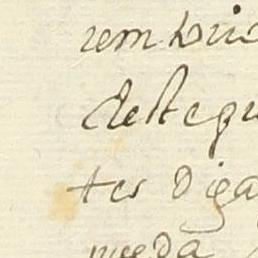 rem Dui
deste qu
tes Diga
meeda